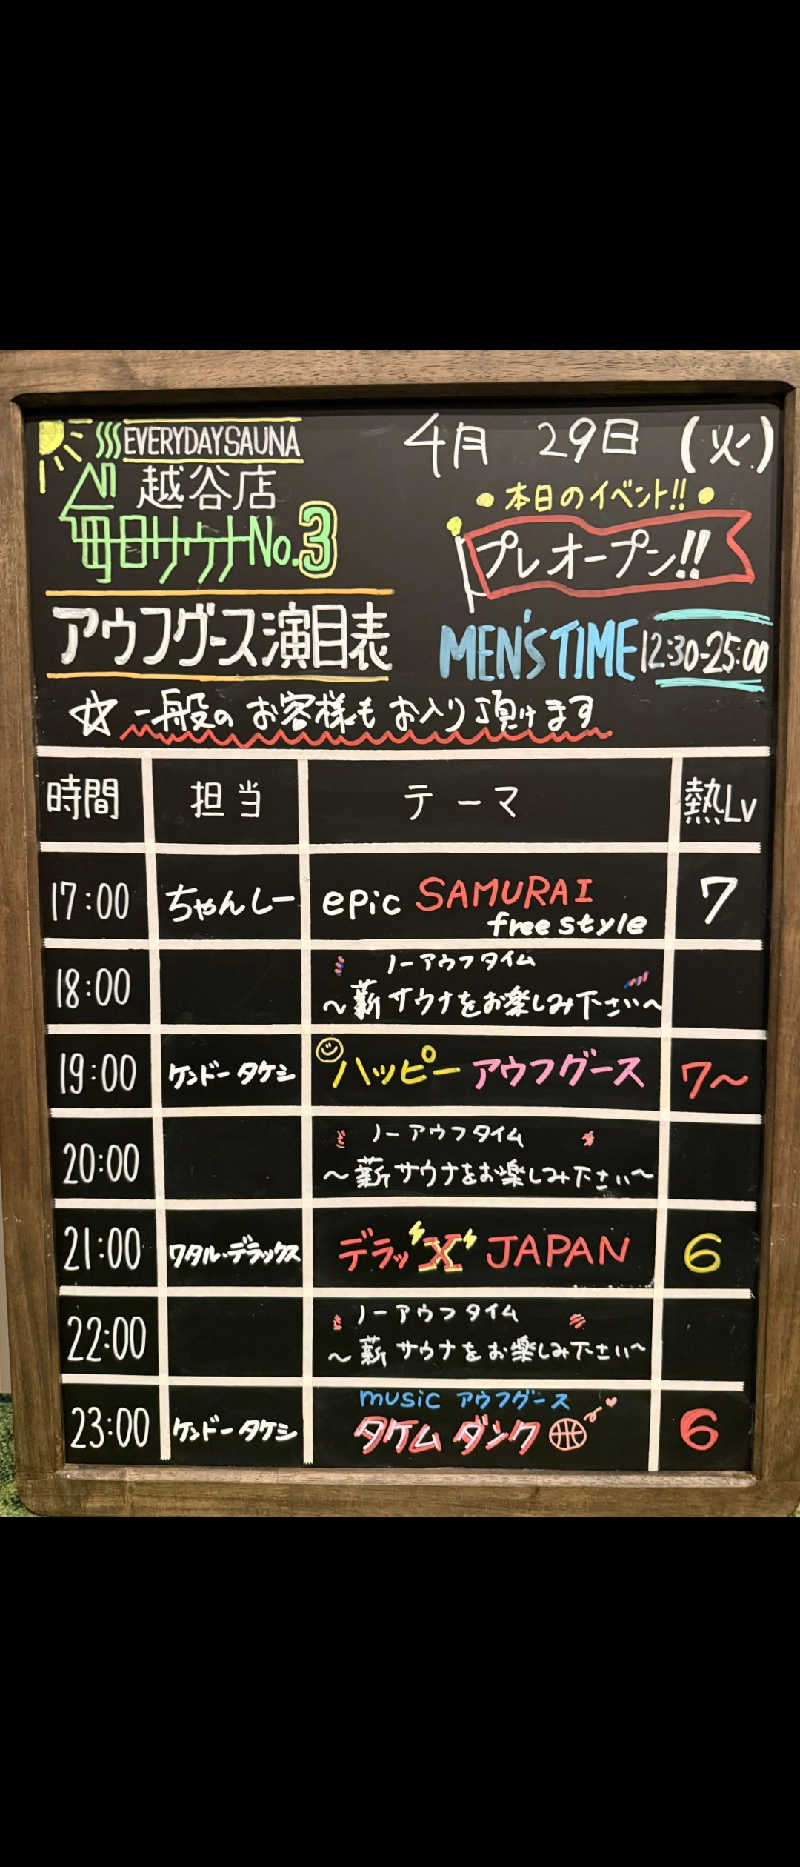 EVERYDAYSAUNA
越谷店
毎日サウナNo.3
4月 29日 (火)
本日のイベント!!
プレオープン!!
アウフグース演目表
MEN'S TIME 12:30-25:00
☆一般のお客様もお入り頂けます
時間 担当 テーマ 熱Lv
17:00 ちゃんしー epic SAMURAI 7
free style
18:00 ノーアウフタイム
〜薪サウナをお楽しみ下さい〜
19:00 ケンドータケシ ハッピーアウフグース 7〜
20:00 ノーアウフタイム
〜薪サウナをお楽しみ下さい〜
21:00 ワタル・デラックス デラッ"X" JAPAN 6
22:00 ノーアウフタイム
〜薪サウナをお楽しみ下さい〜
23:00 ケンドータケシ music アウフグース
タケム ダンク 6